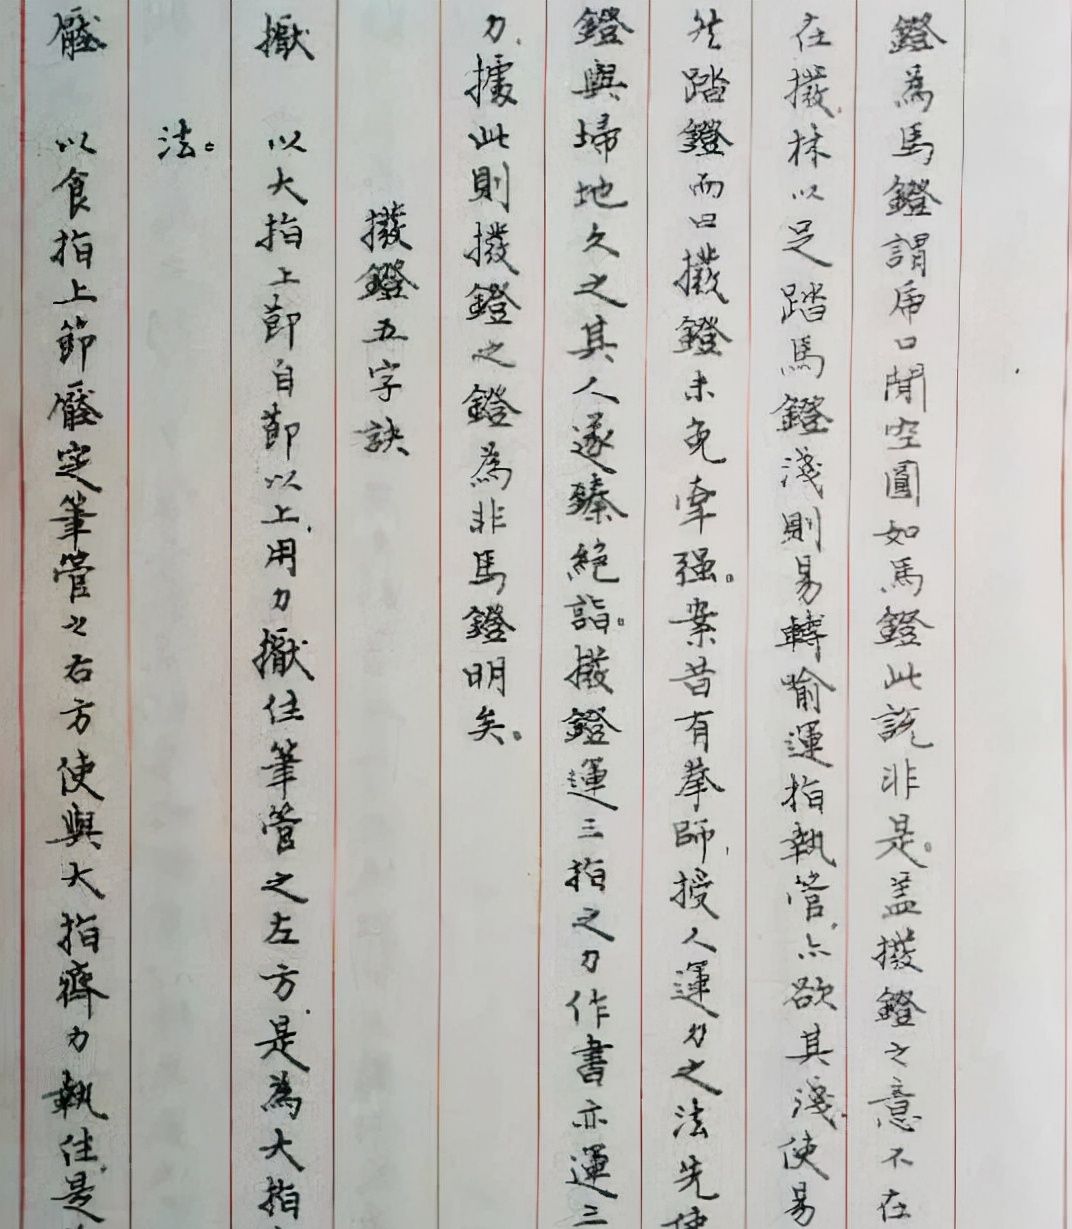 鐙為馬鐙謂虎口間空圓如馬鐙此說非是。盖撥鐙之意不在
在撥抹以足踏馬鐙淺則易轉喻運指執管亦欲其淺使易
然踏鐙而曰撥鐙未免牽强。案昔有拳師授人運力之法先使
鐙與埽地久之其人遂臻絕詣。撥鐙運三指之力作書亦運三
力據此則撥鐙之鐙為非馬鐙明矣。
撥鐙五字訣
擫 以大指上節自節以上用力擫住筆管之左方是為大指
法。
以食指上節定筆管之右方使與大指齊力執住是